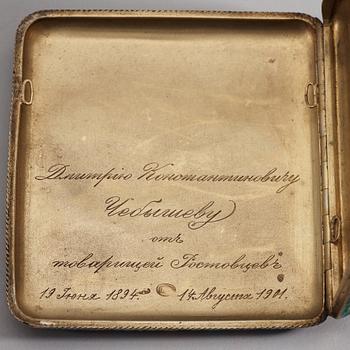 Дмитрію Константиновичу
Чебышеву
отъ
товарищей Ростовцевъ
19 Іюня 1894 г. 14 Августа 1901.